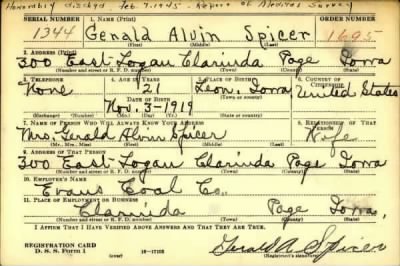 Honorably dischgd. Feb. 7, 1945. - Report of Medical Survey
SERIAL NUMBER 1. NAME (Print) ORDER NUMBER
1344 Gerald Alvin Spicer 1695
(First) (Middle) (Last)
2. ADDRESS (Print)
300 East Logan Clarinda Page Iowa
(Number and street or R. F. D. number) (Town) (County) (State)
3. TELEPHONE 4. AGE IN YEARS 5. PLACE OF BIRTH 6. COUNTRY OF CITIZENSHIP
None 21 Leon, Iowa United States
DATE OF BIRTH (Town or county)
Nov. 3-1919
(Exchange) (Number) (Mo.) (Day) (Yr.) (State or country)
7. NAME OF PERSON WHO WILL ALWAYS KNOW YOUR ADDRESS 8. RELATIONSHIP OF THAT PERSON
Mrs. Gerald Alvin Spicer Wife
(Mr., Mrs., Miss) (First) (Middle) (Last)
9. ADDRESS OF THAT PERSON
300 East Logan Clarinda Page Iowa
(Number and street or R. F. D. number) (Town) (County) (State)
10. EMPLOYER'S NAME
Evans Coal Co.
11. PLACE OF EMPLOYMENT OR BUSINESS
Clarinda Page Iowa,
(Number and street or R. F. D. number) (Town) (County) (State)
I AFFIRM THAT I HAVE VERIFIED ABOVE ANSWERS AND THAT THEY ARE TRUE.
REGISTRATION CARD
D. S. S. Form 1 16-17105 Gerald A Spicer
(Registrant's signature)